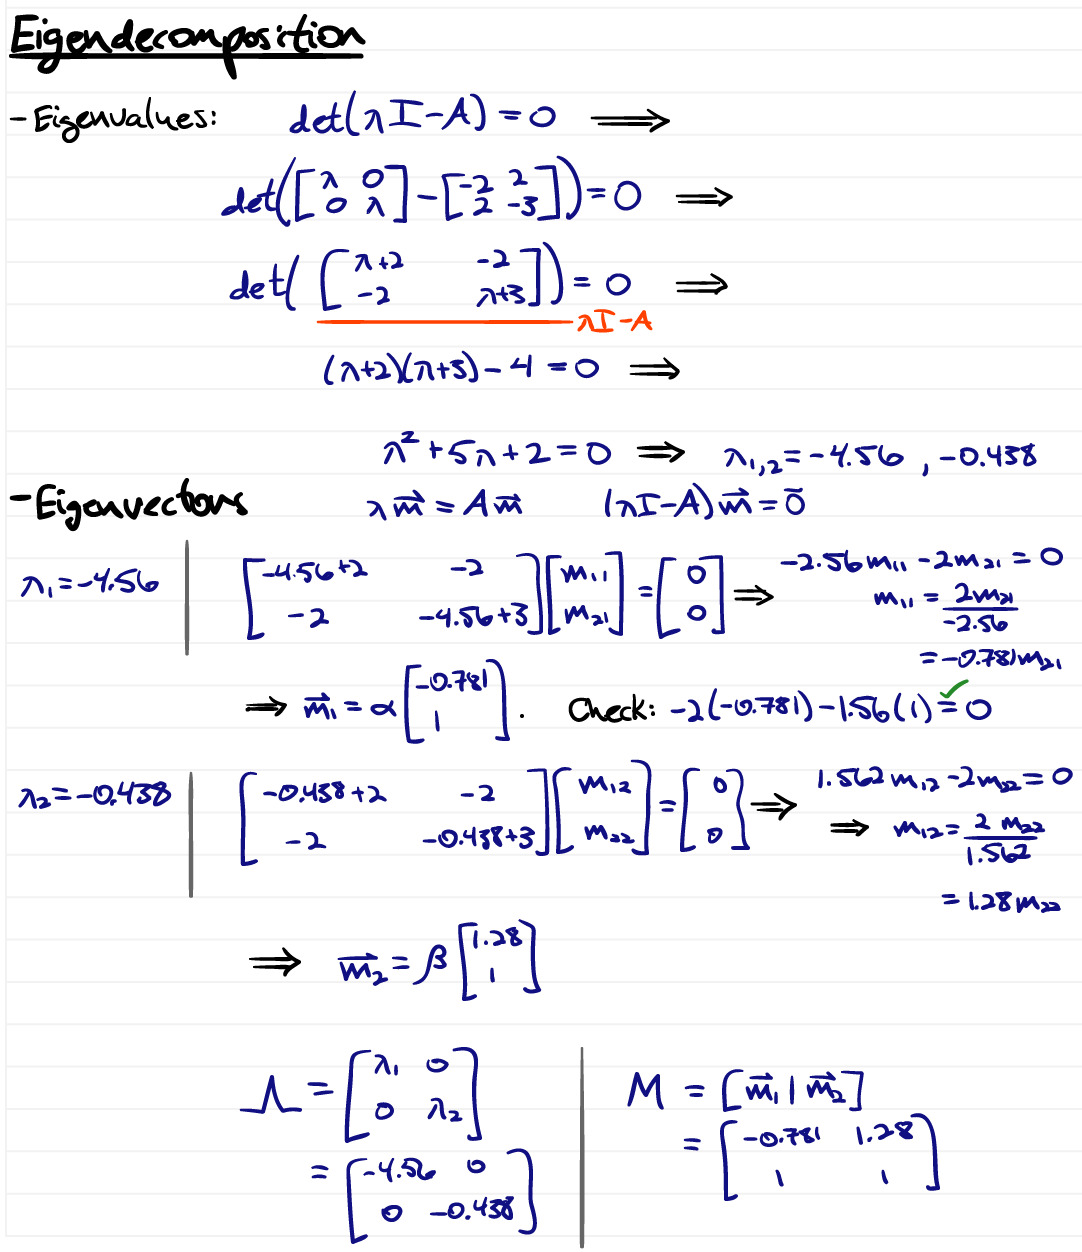 Eigendecomposition
- Eigenvalues: det(λI-A) = 0 ⟹
det([λ 0; 0 λ] - [-2 2; 2 -3]) = 0 ⟹
det([λ+2 -2; -2 λ+3]) = 0 ⟹
λI-A
(λ+2)(λ+3) - 4 = 0 ⟹
λ² + 5λ + 2 = 0 ⟹ λ₁,₂ = -4.56 , -0.438
- Eigenvectors λm⃗ = Am⃗ (λI-A)m⃗ = 0̄
λ₁ = -4.56 [-4.56+2 -2; -2 -4.56+3][m₁₁; m₂₁] = [0; 0] ⟹ -2.56m₁₁ - 2m₂₁ = 0
m₁₁ = 2m₂₁/-2.56
= -0.781m₂₁
⟹ m⃗₁ = α[-0.781; 1]. Check: -2(-0.781) - 1.56(1) = 0 ✓
λ₂ = -0.438 [-0.438+2 -2; -2 -0.438+3][m₁₂; m₂₂] = [0; 0] ⟹ 1.562m₁₂ - 2m₂₂ = 0
⟹ m₁₂ = 2m₂₂/1.562
= 1.28m₂₂
⟹ m⃗₂ = β[1.28; 1]
Λ = [λ₁ 0; 0 λ₂]
= [-4.56 0; 0 -0.438]
M = [m⃗₁ | m⃗₂]
= [-0.781 1.28; 1 1]